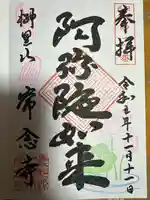 奉拝
令和年十一月十一日
阿弥陀如来
常念寺